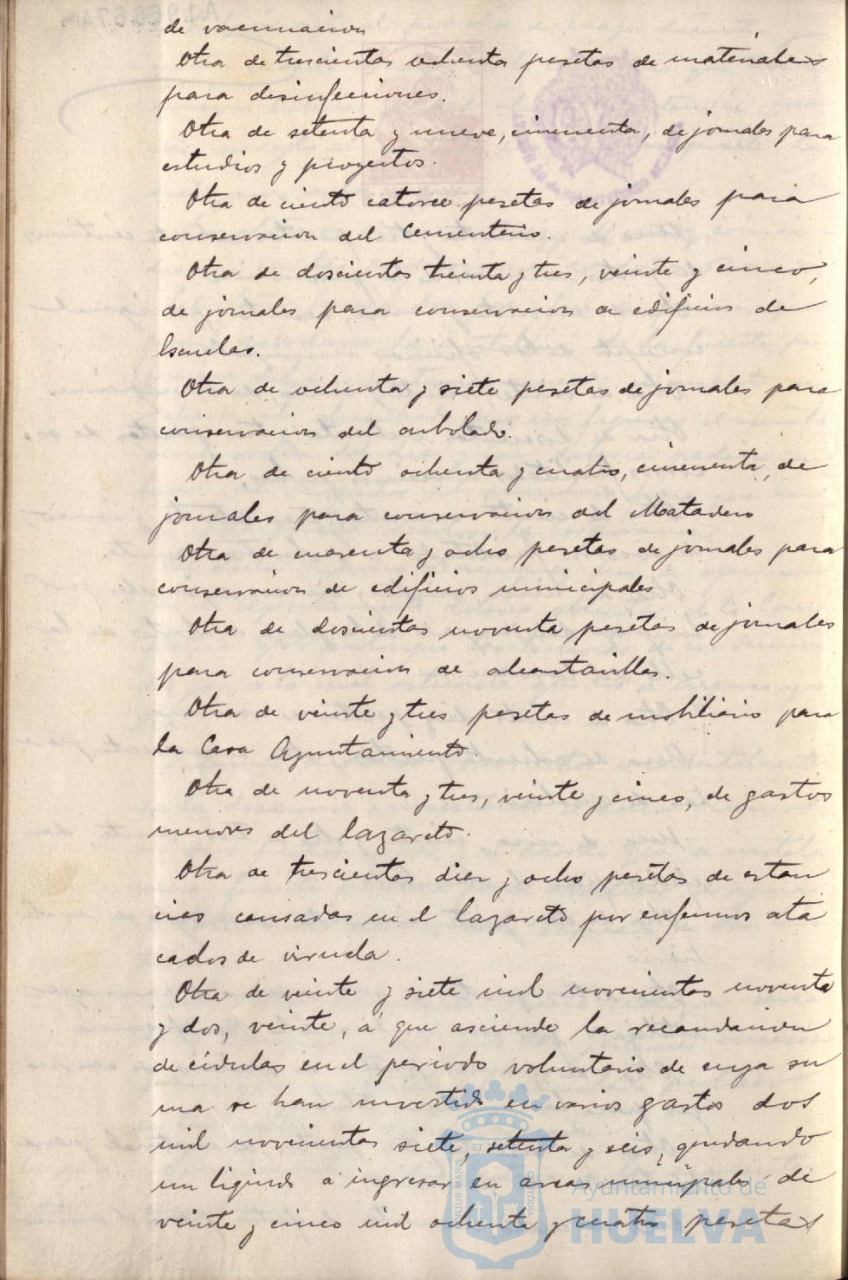 de vacunacion
Otra de trescientas ochenta pesetas de materiales
para desinfecciones.
Otra de setenta y nueve, cincuenta, de jornales para
estudios y proyectos.
Otra de ciento catorce pesetas de jornales para
conservacion del Cementerio.
Otra de doscientas treinta y tres, veinte y cinco,
de jornales para conservacion de edificios de
Escuelas.
Otra de ochenta y siete pesetas de jornales para
conservacion del arbolado.
Otra de ciento ochenta y cuatro, cincuenta, de
jornales para conservacion del Matadero
Otra de cuarenta y ocho pesetas de jornales para
conservacion de edificios municipales
Otra de doscientas noventa pesetas de jornales
para conservacion de alcantarillas.
Otra de veinte y tres pesetas de mobiliario para
la Casa Ayuntamiento.
Otra de noventa y tres, veinte y cinco, de gastos
menores del lazareto.
Otra de trescientas diez y ocho pesetas de estan
cias causadas en el lazareto por enfermos ata
cados de viruela.
Otra de veinte y siete mil novecientas noventa
y dos, veinte, á que asciende la recaudacion
de cédulas en el periodo voluntario de cuya su
ma se han invertido en varios gastos dos
mil novecientas siete, setenta y seis, quedando
un liquido á ingresar en arcas municipales de
veinte y cinco mil ochenta y cuatro pesetas
Ayuntamiento de
HUELVA